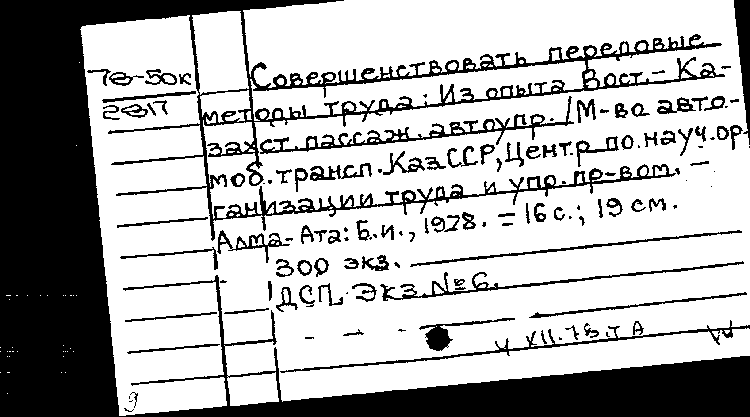 78-50к
2817
Совершенствовать передовые
методы труда: Из опыта Вост.-Ка-
захст. пассаж. автоупр. /М-во авто-
моб. трансп. КазССР, Центр по науч. ор-
ганизации труда и упр. пр-вом. -
Алма-Ата: Б.и., 1978. = 16 с.; 19 см.
300 экз.
ДСП. Экз. № 6.
XII.78. т А
9